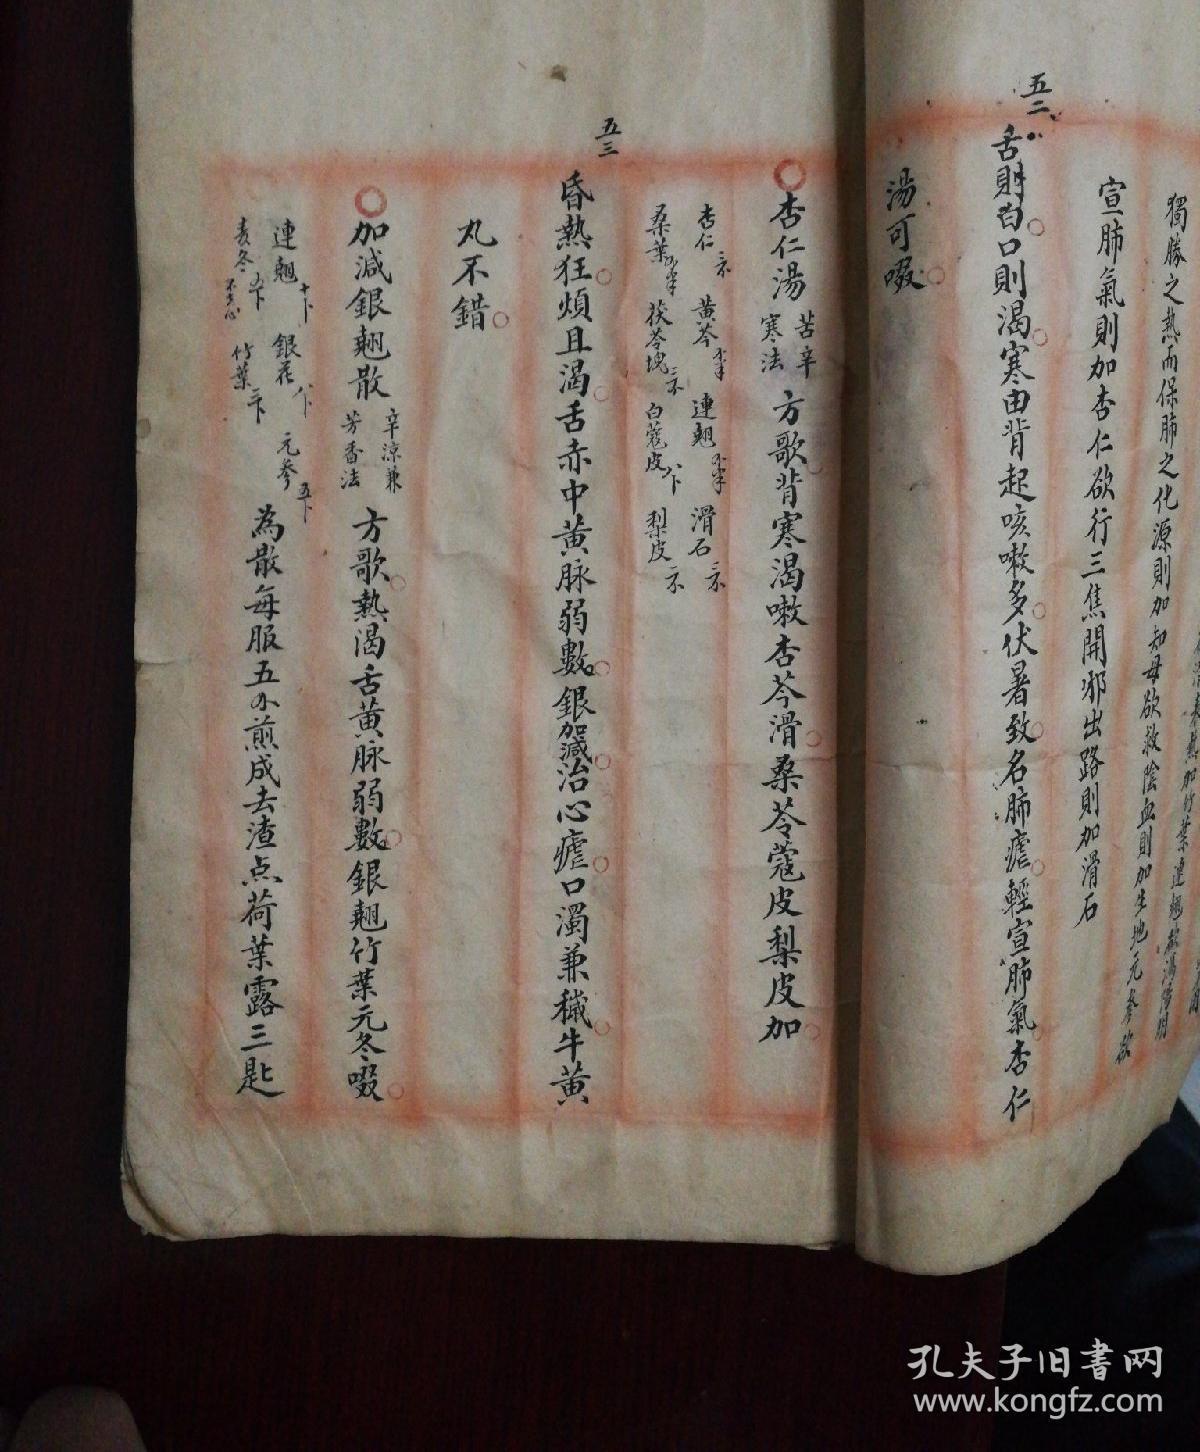 獨勝之熱而保肺之化源則加知母欲救陰血則加生地元參欲
宣肺氣則加杏仁欲行三焦開邪出路則加滑石
五二
舌則白口則渴寒由背起咳嗽多伏暑致名肺瘧輕宣肺氣杏仁
湯可啜
杏仁湯 苦辛寒法 方歌背寒渴嗽杏芩滑桑苓蔻皮梨皮加
杏仁 黃芩 連翹 滑石
桑葉 茯苓塊 白蔻皮 梨皮
五三
昏熱狂煩且渴舌赤中黃脉弱數銀加減治心瘧口濁兼穢牛黃
丸不錯
加減銀翹散 辛涼兼芳香法 方歌熱渴舌黃脉弱數銀翹竹葉元冬啜
連翹 銀花 元參
麦冬 不去心 竹葉
為散每服五 煎成去渣点荷葉露三匙
孔夫子旧書网
www.kongfz.com